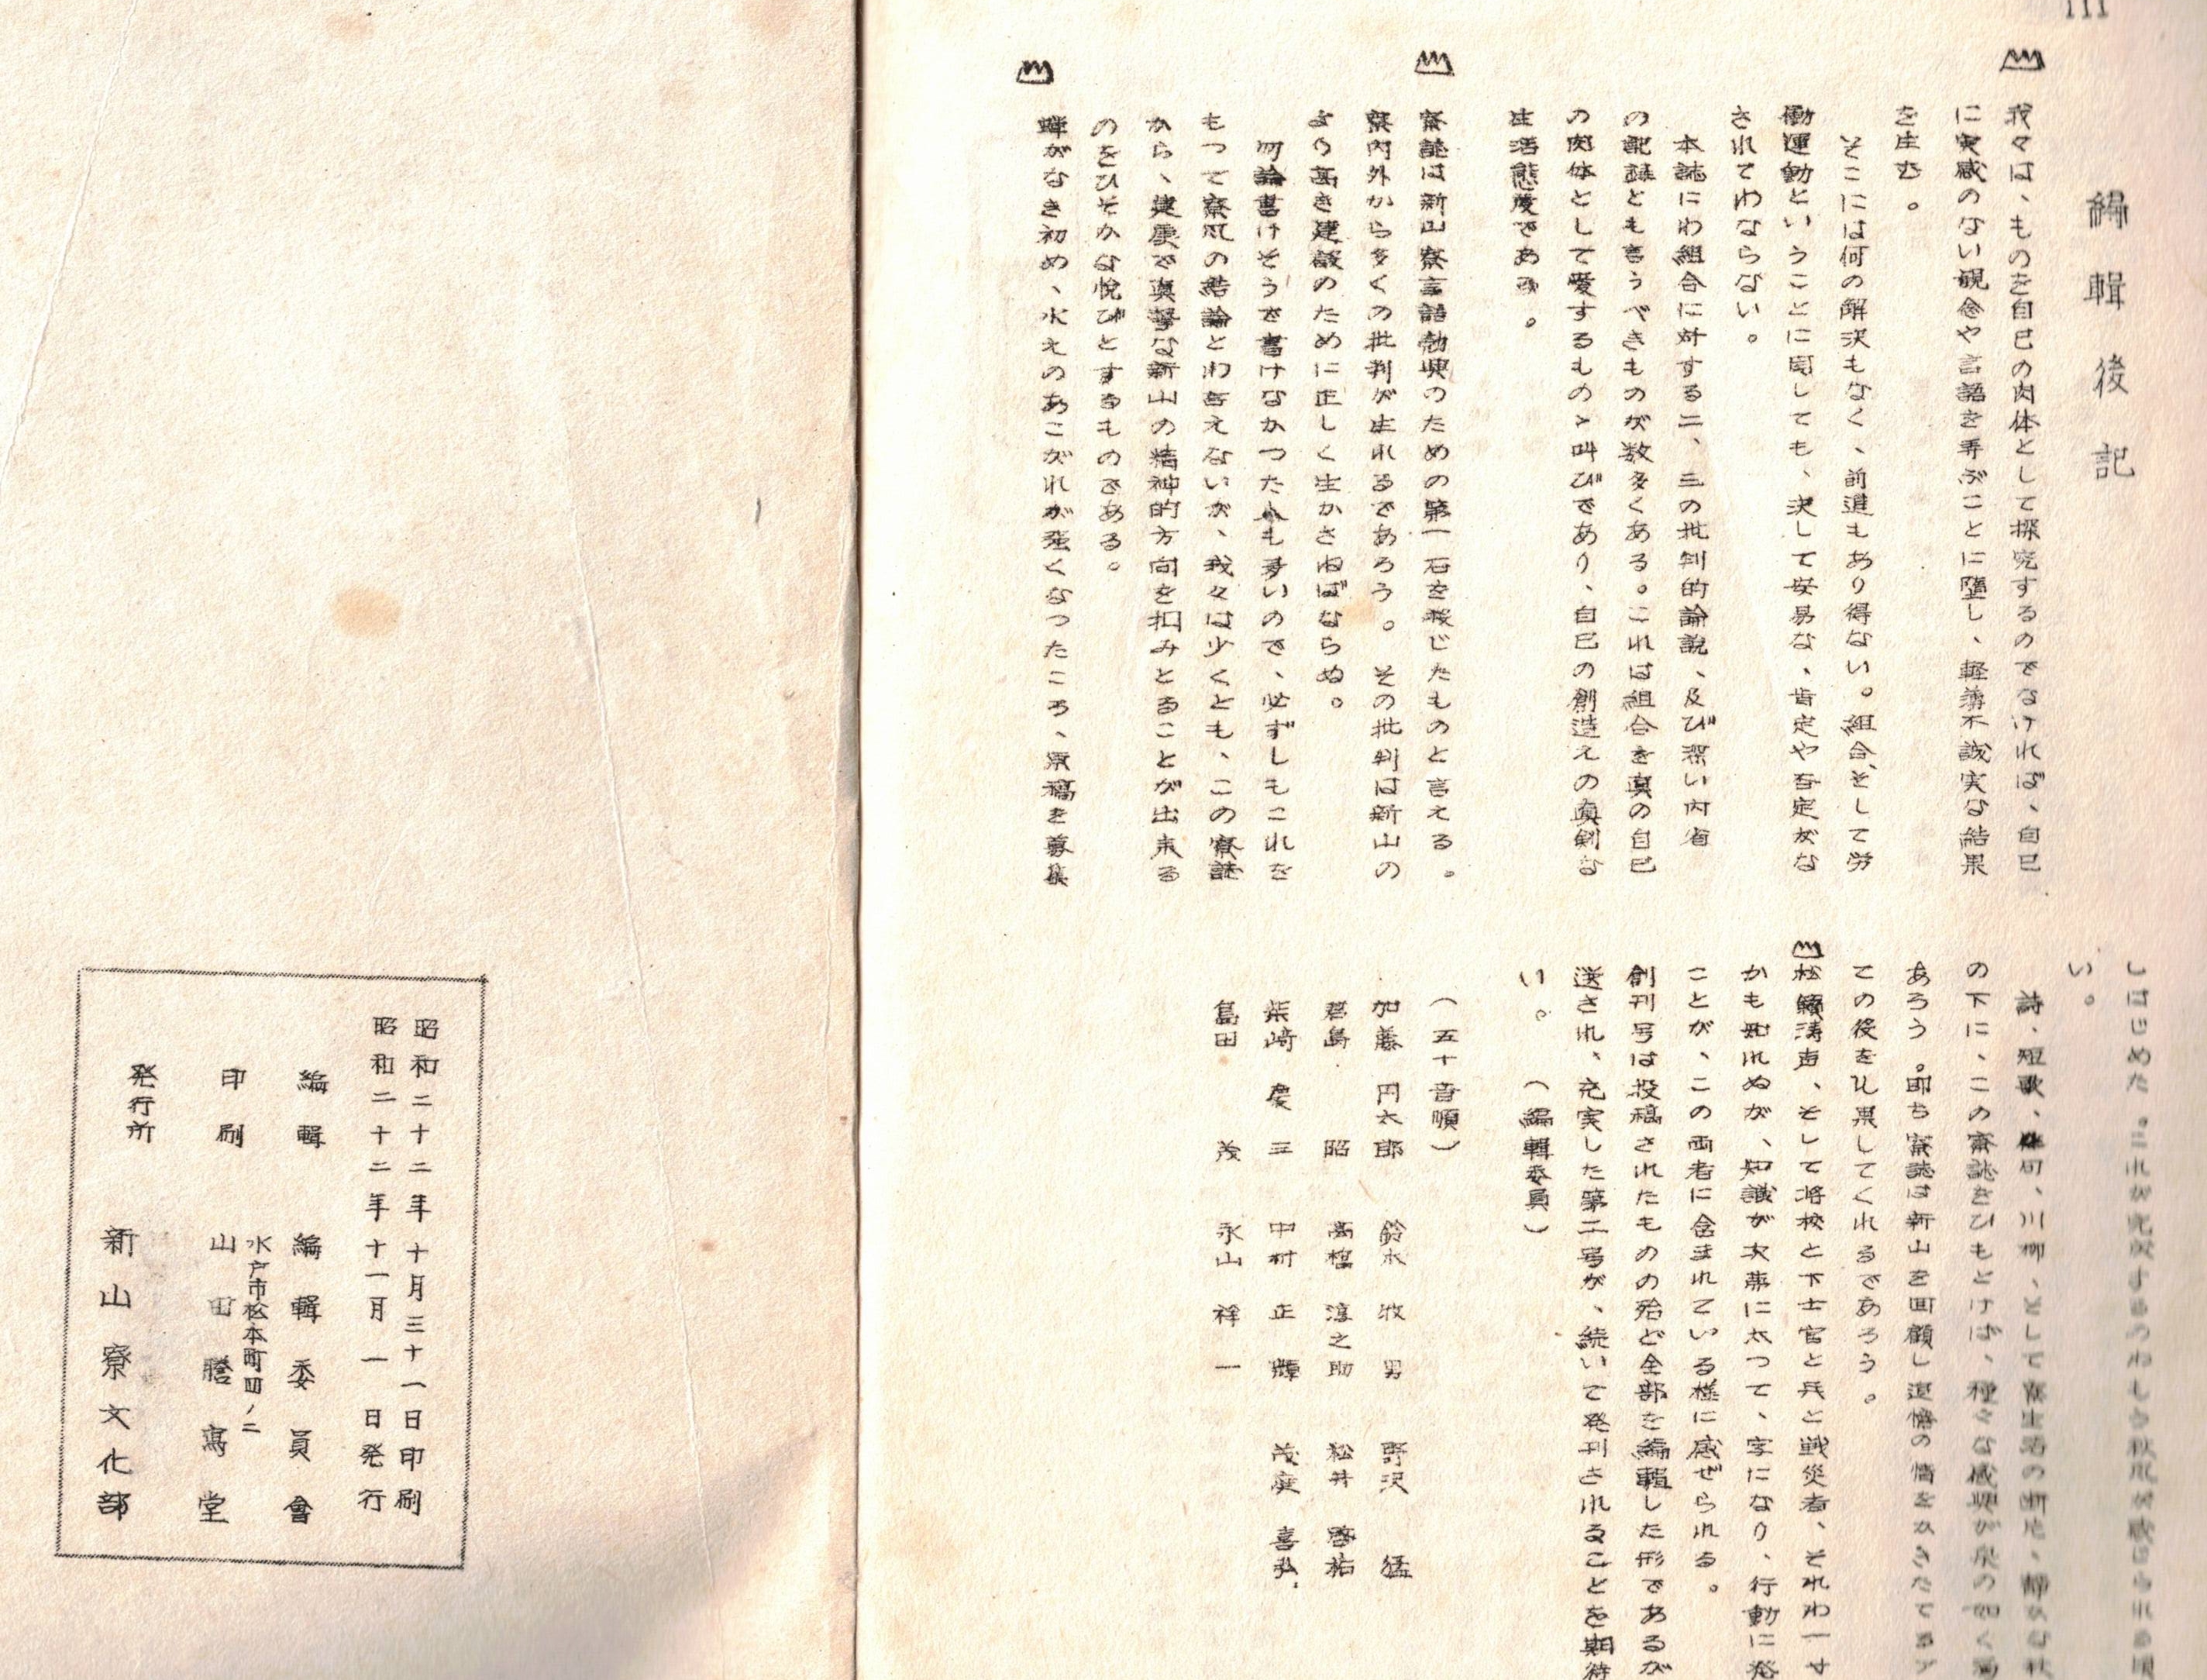 111
編輯後記
我々は、ものを自己の肉体として探究するのでなければ、自己
に実感のない観念や言語を弄ぶことに墮し、軽薄不誠実な結果
を生む。
そこには何の解決もなく、前進もあり得ない。組合、そして労
働運動ということに関しても、決して安易な、肯定や否定がな
されてわならない。
本誌にわ組合に対する二、三の批判的論説、及び深い内省
の記録とも言うべきものが数多くある。これは組合を真の自己
の肉体として愛するものゝ叫びであり、自己の創造えの真剣な
生活態度である。
寮誌は新山寮言論勃興のための第一石を投じたものと言える。
寮内外から多くの批判が生れるであろう。その批判は新山の
より高き建設のために正しく生かさねばならぬ。
勿論書けそうで書けなかつた人も多いので、必ずしもこれを
もつて寮風の結論とわ言えないが、我々は少くとも、この寮誌
から、健康で真摯な新山の精神的方向を掴みとることが出来る
のをひそかな悦びとするものである。
蟬がなき初め、水えのあこがれが強くなつたころ、原稿を募集
しはじめた。これが完成するのわもう秋風が感じられる頃
い。
詩、短歌、俳句、川柳、そして寮生活の断片、静かな秋
の下に、この寮誌をひもとけば、種々な感興が泉の如く湧
あろう。即ち寮誌は新山を回顧し追憶の情をかきたてるア
ての役をも果してくれるであろう。
松籟涛声、そして将校と下士官と兵と戦災者、それわ一寸
かも知れぬが、知識が次第に太つて、字になり、行動に発
ことが、この両者に含まれている様に感ぜられる。
創刊号は投稿されたものの殆ど全部を編輯した形であるが
送され、充実した第二号が、続いて発刊されることを期待
い。 (編輯委員)
(五十音順)
加藤 円太郎 鈴木 牧男 野沢 猛
君島 昭 高橋 淳之助 松井 啓祐
柴崎 慶三 中村 正輝 茂庭 喜弘
島田 茂 永山 祥一
昭和二十二年十月三十一日印刷
昭和二十二年十一月一日発行
編輯 編輯委員會
水戸市松本町四ノ二
印刷 山田謄寫堂
発行所 新山寮文化部